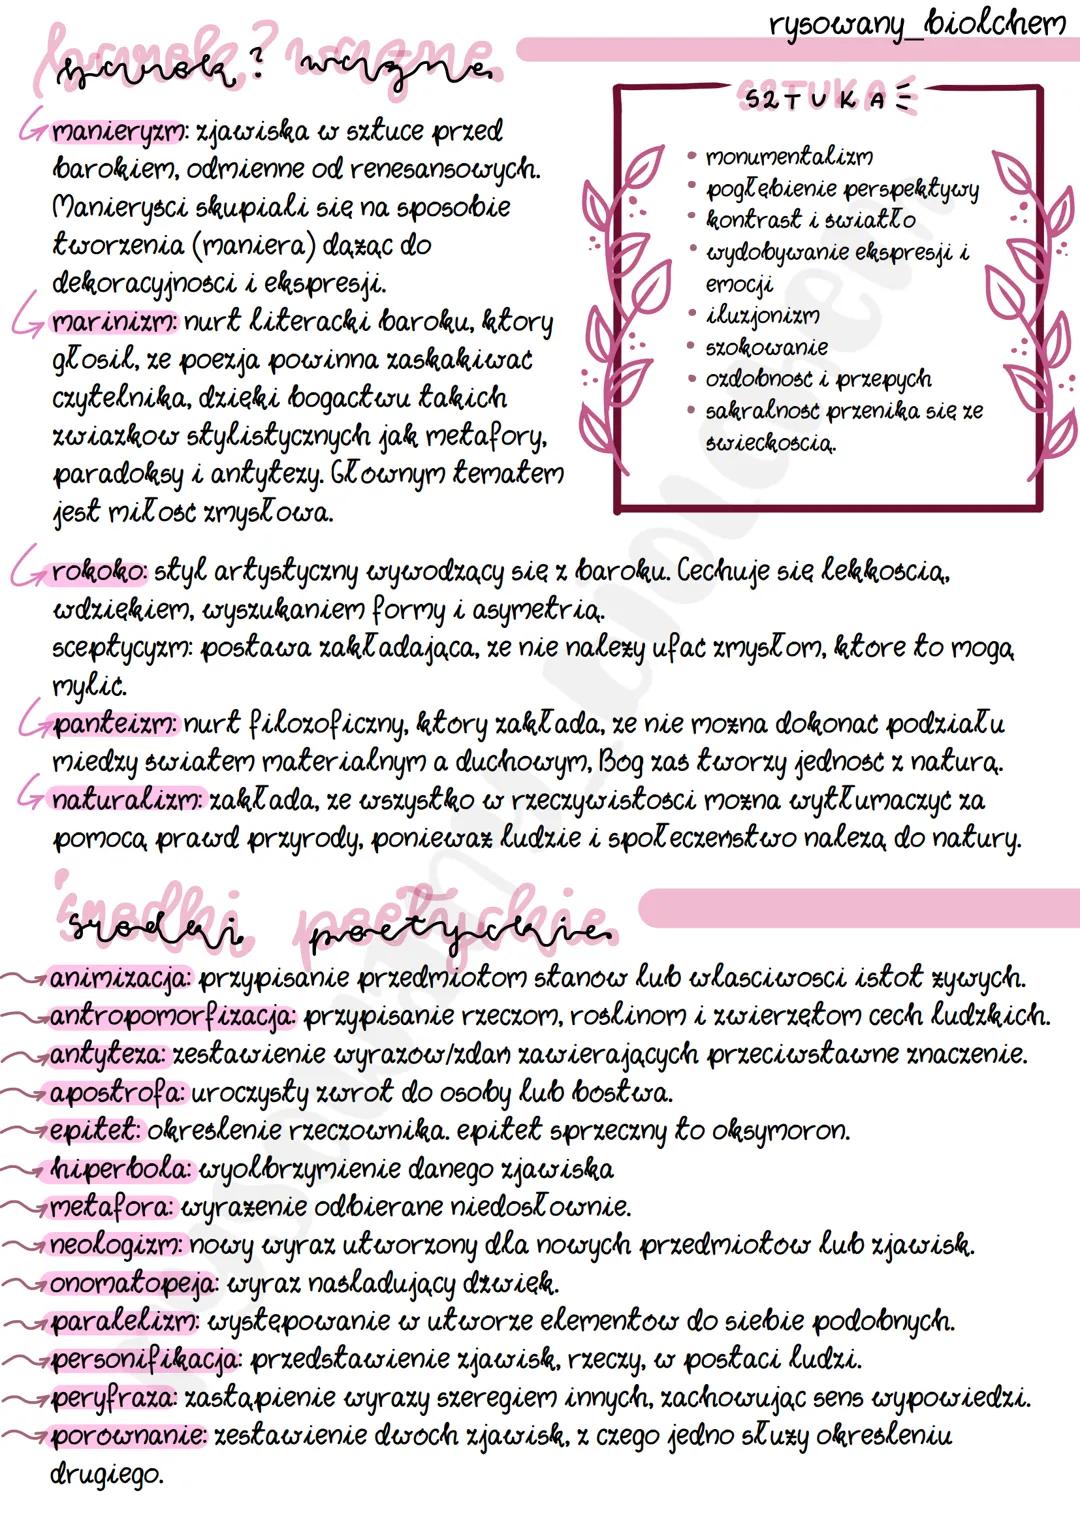 rysowany_biolchem
barok? ważne
SZTUKA
manieryzm: zjawiska w sztuce przed
barokiem, odmienne od renesansowych.
Manieryści skupiali się na sposobie
tworzenia (maniera) dążąc do
dekoracyjności i ekspresji.
marinizm: nurt literacki baroku, ktory
głosił, ze poezja powinna zaskakiwać
czytelnika, dzięki bogactwu takich
zwiazkow stylistycznych jak metafory,
paradoksy i antytezy. Głownym tematem
jest miłość zmysłowa.
monumentalizm
pogłębienie perspektywy
kontrast i światło
wydobywanie ekspresji i
emocji
iluzjonizm
szokowanie
ozdobność i przepych
sakralność przenika się ze
świeckością.
rokoko: styl artystyczny wywodzący się z baroku. Cechuje się lekkością,
wdziękiem, wyszukaniem formy i asymetrią.
sceptycyzm: postawa zakładająca, ze nie należy ufać zmysłom, ktore to mogą
mylić.
panteizm: nurt filozoficzny, ktory zakłada, ze nie można dokonać podziału
miedzy światem materialnym a duchowym, Bog zaś tworzy jedność z naturą.
naturalizm: zakłada, ze wszystko w rzeczywistości można wytłumaczyć za
pomocą prawd przyrody, ponieważ ludzie i społeczeństwo należą do natury.
środki poetyckie
animizacja: przypisanie przedmiotom stanow lub wlasciwosci istot żywych.
antropomorfizacja: przypisanie rzeczom, roślinom i zwierzętom cech ludzkich.
antyteza: zestawienie wyrazow/zdań zawierających przeciwstawne znaczenie.
apostrofa: uroczysty zwrot do osoby lub bostwa.
epitet: określenie rzeczownika. epitet sprzeczny to oksymoron.
hiperbola: wyolbrzymienie danego zjawiska
metafora: wyrażenie odbierane niedosłownie.
neologizm: nowy wyraz utworzony dla nowych przedmiotow lub zjawisk.
onomatopeja: wyraz naśladujący dźwięk.
paralelizm: występowanie w utworze elementow do siebie podobnych.
personifikacja: przedstawienie zjawisk, rzeczy, w postaci ludzi.
peryfraza: zastąpienie wyrazy szeregiem innych, zachowując sens wypowiedzi.
porownanie: zestawienie dwoch zjawisk, z czego jedno służy określeniu
drugiego.